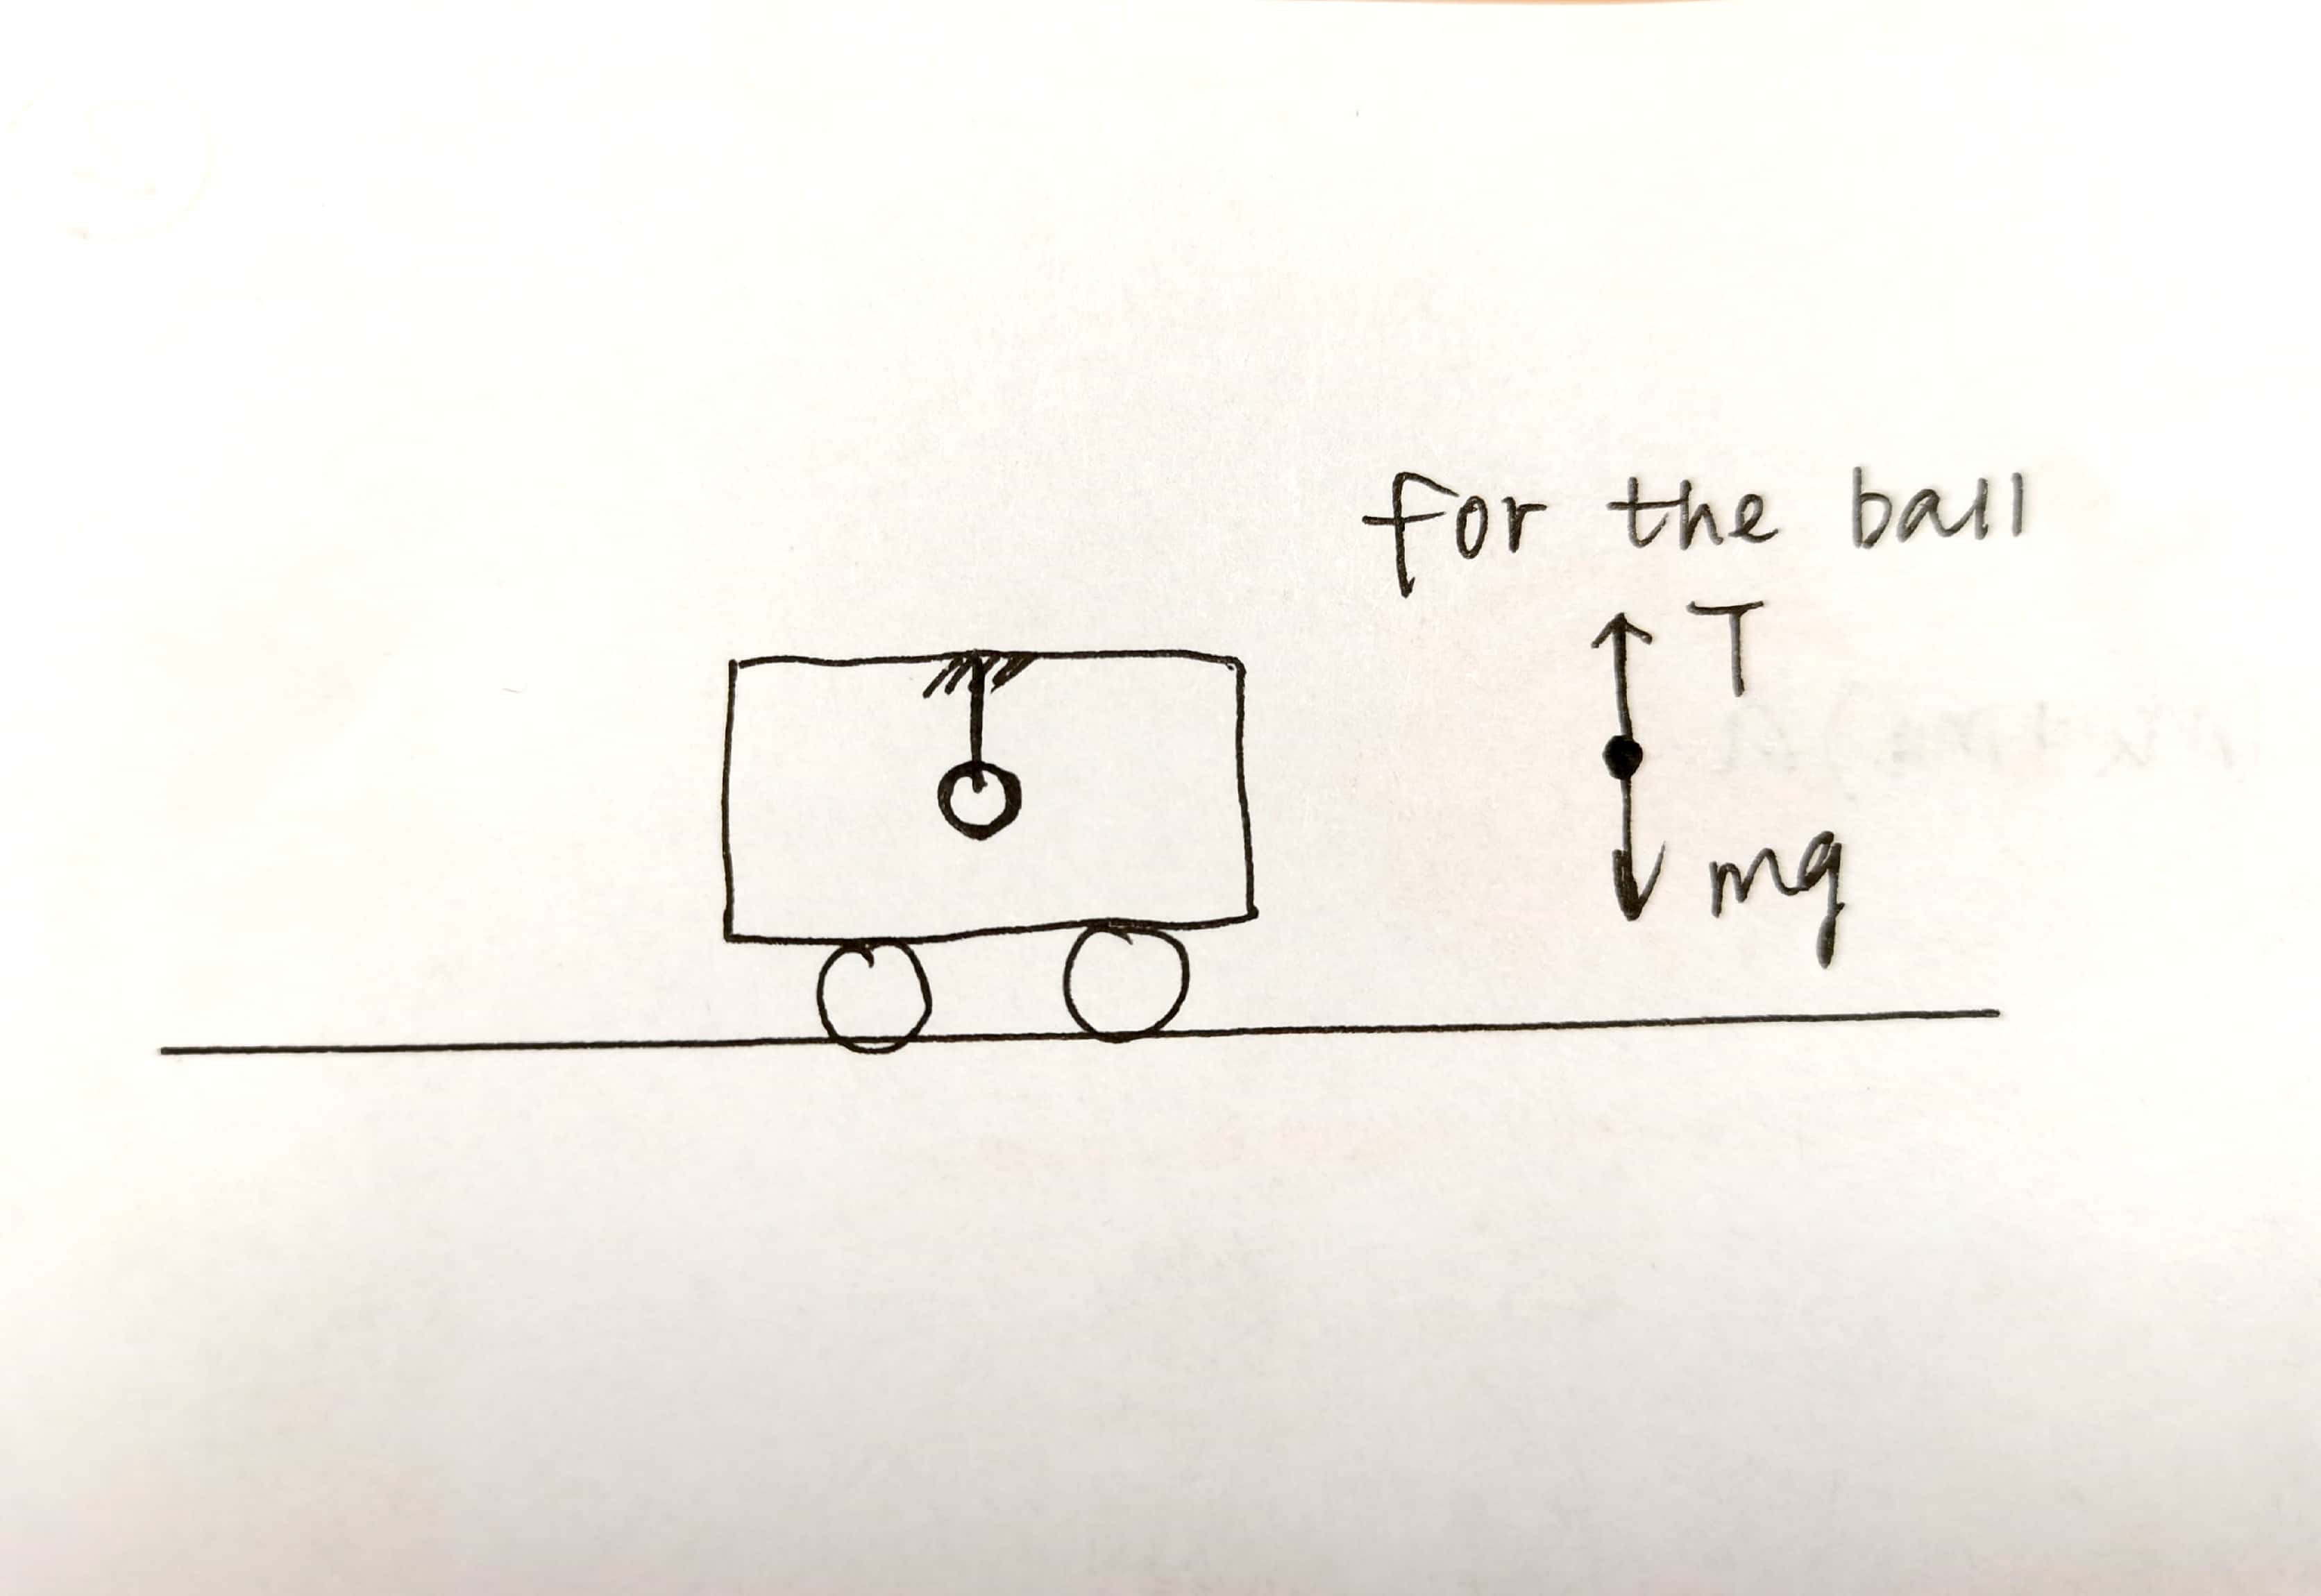 for the ball
T
mg